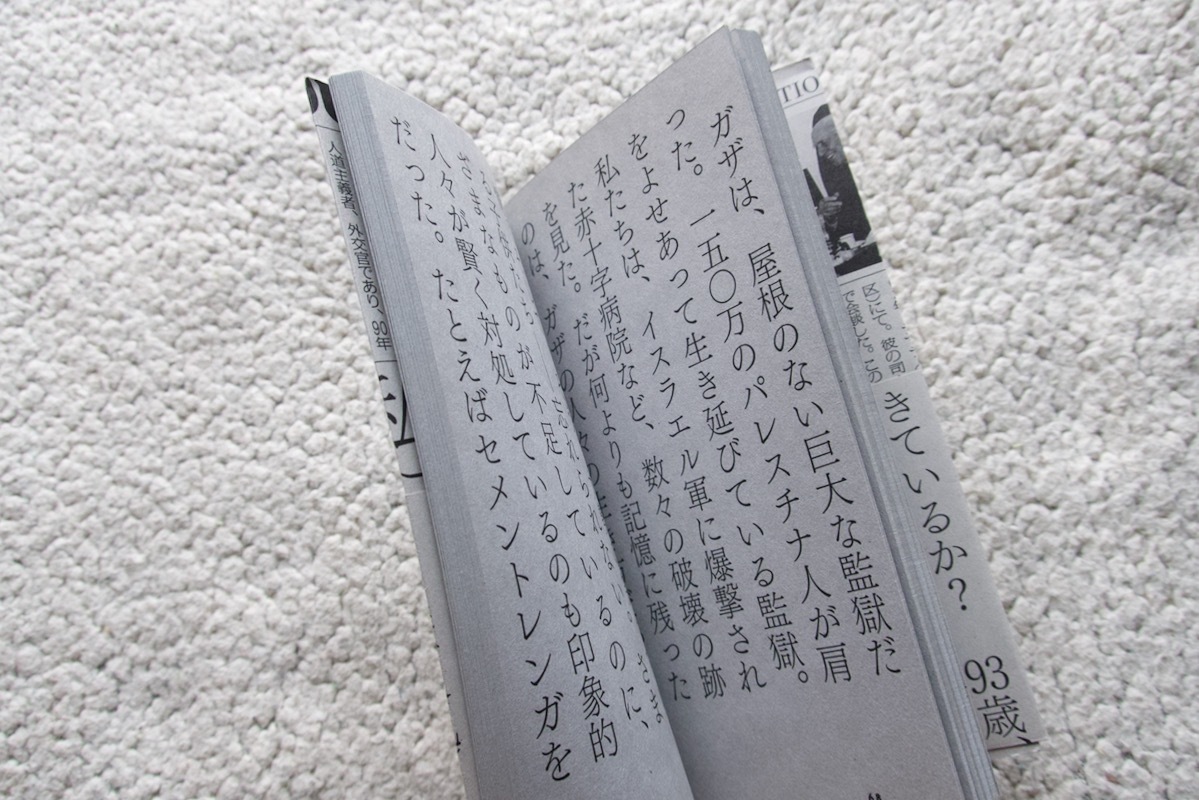 ガザは、屋根のない巨大な監獄だ
った。一五〇万のパレスチナ人が肩
をよせあって生き延びている監獄。
私たちは、イスラエル軍に爆撃され
た赤十字病院など、数々の破壊の跡
を見た。だが何よりも記憶に残った
のは、ガザの人々の
忘れられない。さま
ざまなものが不足しているのに、
人々が賢く対処しているのも印象的
だった。たとえばセメントレンガを
人道主義者、外交官であり、90年
TIO
区)にて。彼の司
で会談した。この
きているか?
93歳、